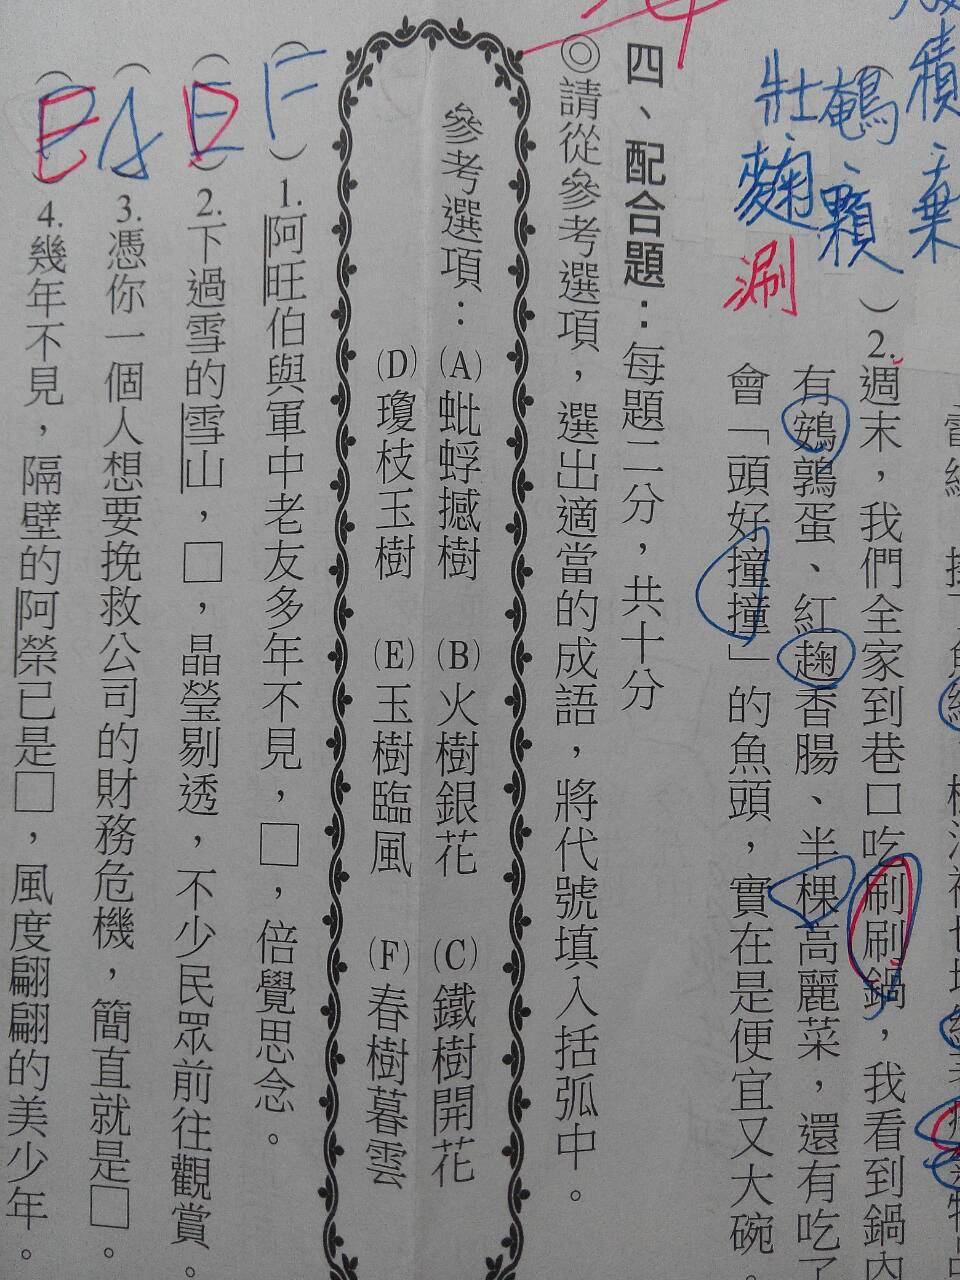 積、棄
鵪、顆
壯、麴
涮
）2.週末，我們全家到巷口吃刷刷鍋，我看到鍋內
有鵪鶉蛋、紅麴香腸、半棵高麗菜，還有吃了
會「頭好撞撞」的魚頭，實在是便宜又大碗。
四、配合題：每題二分，共十分
◎請從參考選項，選出適當的成語，將代號填入括弧中。
參考選項：(A)蚍蜉撼樹 (B)火樹銀花 (C)鐵樹開花
(D)瓊枝玉樹 (E)玉樹臨風 (F)春樹暮雲
（F）1.阿旺伯與軍中老友多年不見，□，倍覺思念。
（D）2.下過雪的雪山，□，晶瑩剔透，不少民眾前往觀賞。
（A）3.憑你一個人想要挽救公司的財務危機，簡直就是□。
（E）4.幾年不見，隔壁的阿榮已是□，風度翩翩的美少年。